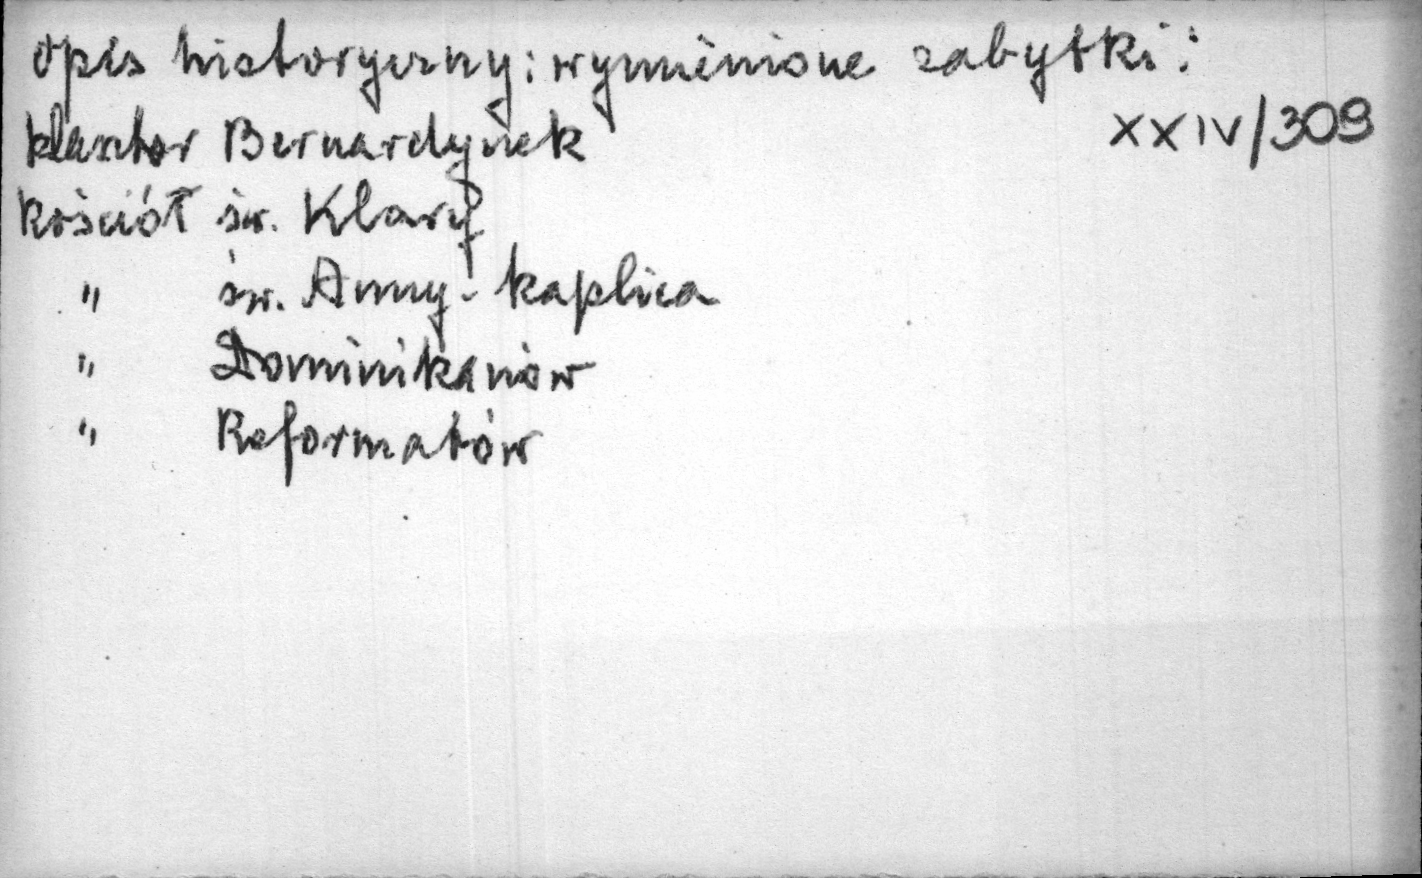 opis historyczny; wymienione zabytki:
klasztor Bernardynek
XXIV/309
kościół św. Klary
" św. Anny - kaplica
" Dominikanów
" Reformatów